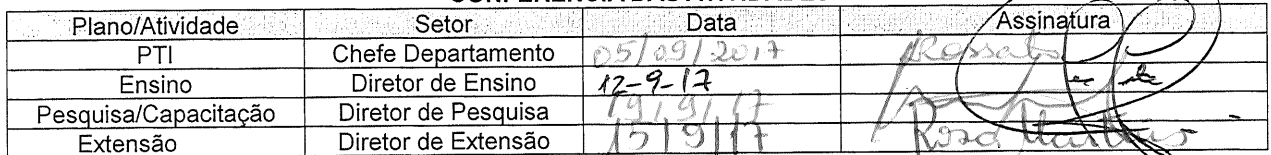 Plano/Atividade Setor Data Assinatura
PTI Chefe Departamento 05/09/2017 Rossato
Ensino Diretor de Ensino 12-9-17
Pesquisa/Capacitação Diretor de Pesquisa 19/9/17
Extensão Diretor de Extensão 15/9/17 Rosa Martins